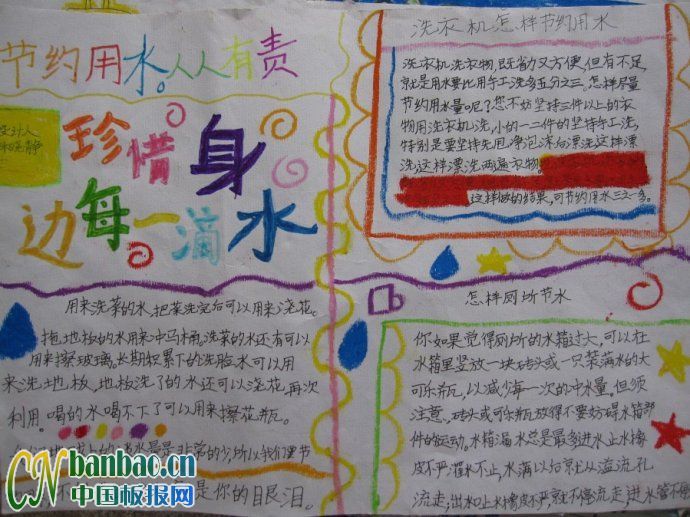 节约用水。人人有责
珍惜身
边每一滴水
用来洗菜的水,把菜洗完后可以用来浇花。
拖地板的水用来冲马桶,洗菜的水还有可以
用来擦玻璃。长期积累下的洗脸水可以用
来洗地板,地板洗了的水还可以浇花,再次
利用。喝的水喝不下了可以用来擦花瓶。
是你的眼泪。
洗衣机怎样节约用水
洗衣机洗衣物,既省力又方便,但有不足,
就是用水要比用手工洗多五分之三。怎样尽量
节约用水量呢?您不妨坚持三件以上的衣
物用洗衣机洗,小的一二件的坚持手工洗,
特别是要坚持先甩净泡沫后漂洗这样漂
洗这样漂洗两遍衣物。
这样做的结果,可节约用水三之一多。
怎样厕所节水
你如果觉得厕所的水箱过大,可以在
水箱里竖放一块砖头或一只装满水的大
可乐瓶,以减少每一次的冲水量。但须
注意,砖头或可乐瓶放得不要妨碍水箱部
件的运动。水箱漏水总是最多进水止水橡
皮不严,灌水不止,水满以后就从溢流孔
流走,出水口止水橡皮不严,就不停流走,进水管不停
CN banbao.cn
中国板报网